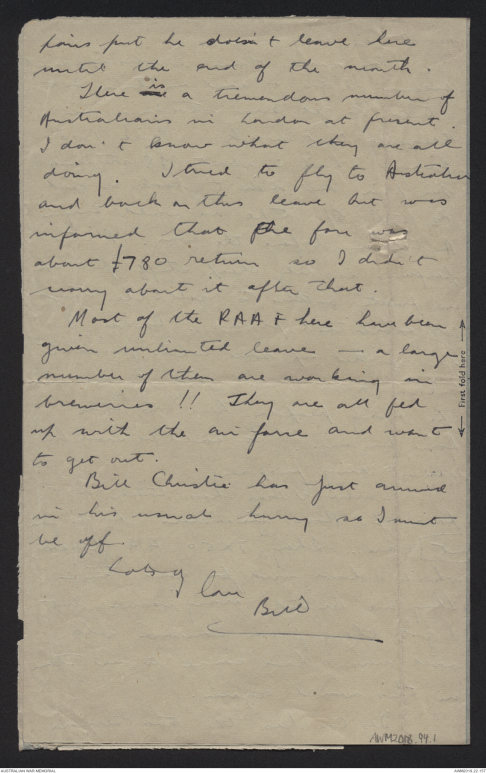 put he doesn't leave here
until the end of the month.
There is a tremendous number of
Australians in London at present.
I don't know what they are all
doing. I tried to fly to Australia
and back on this leave but was
informed that the fare was
about £780 return so I didn't
worry about it after that.
Most of the RAAF here have been
given unlimited leave — a large
number of them are working in
breweries !! They are all fed
up with the air force and want
to get out.
Bill Christie has just arrived
in his usual hurry so I must
be off.
Lots of love
Bill
First fold here
AWM2018.94.1
AUSTRALIAN WAR MEMORIAL